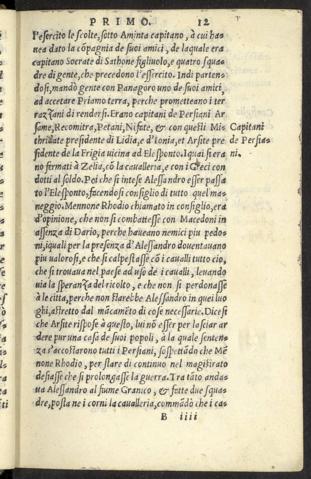 PRIMO. 12
l'esercito le scolte, sotto Aminta capitano, à cui hauea dato la cōpagnia de suoi amici, de laquale era
capitano Socrate di Sathone figliuolo, e quatro squadre di gente, che precedono l'essercito. Indi partendosi, mandò gente con Panagoro uno de suoi amici,
ad accetare Priamo terra, perche prometteano i terrazzani di rendersi. Erano capitani de Persiani Arsame, Recomitra, Petani, Nifate, & con questi Misthrillate presidente di Lidia, e d'Ionia, et Arsite presidente de la Frigia uicina ad Elesponto. I quai si erano fermati à Zelia, cō la cauallaria, e con i Greci condotti al soldo. Poi che si intese Alessandro esser passato l'Elesponto, facendosi consiglio di tutto quel maneggio. Mennone Rhodio chiamato in consiglio, era
d'opinione, che non si combattesse con Macedoni in
assenza di Dario, perche haueano nemici piu pedoni, iquali per la presenza d'Alessandro douentauano
piu ualorosi, e che si calpestasse cō i caualli tutto cio,
che si trouaua nel paese ad uso de i caualli, leuando
uia la speranza del ricolto, e che non si perdonasse
à le citta, perche non starebbe Alessandro in quei luoghi, astretto dal mācamēto di cose necessarie. Dicesi
che Arsite rispose à questo, lui nō esser per lasciar ardere pur una casa de suoi popoli, à la quale sentenza s'accostarono tutti i Persiani, sospettādo che Mēnone Rhodio, per stare di continuo nel magistrato
desiasse che si prolongasse la guerra. Tra tāto andaua Alessandro al fiume Granico, & fatte due squadre, posta ne i corni la cauallaria, commādò che i cas
Capitani
de Persiani.
B iiii